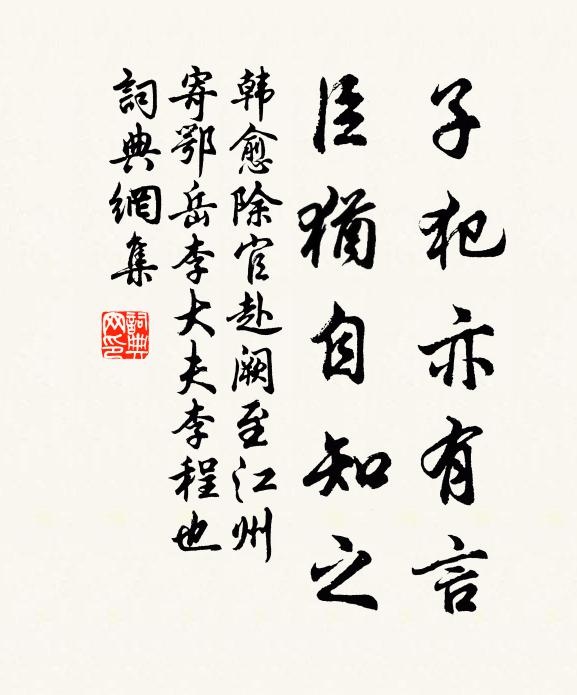 子犯亦有言
臣猶自知之
韩愈除官赴阙至江州
寄鄂岳李大夫李程也
詞典網集
詞典网印